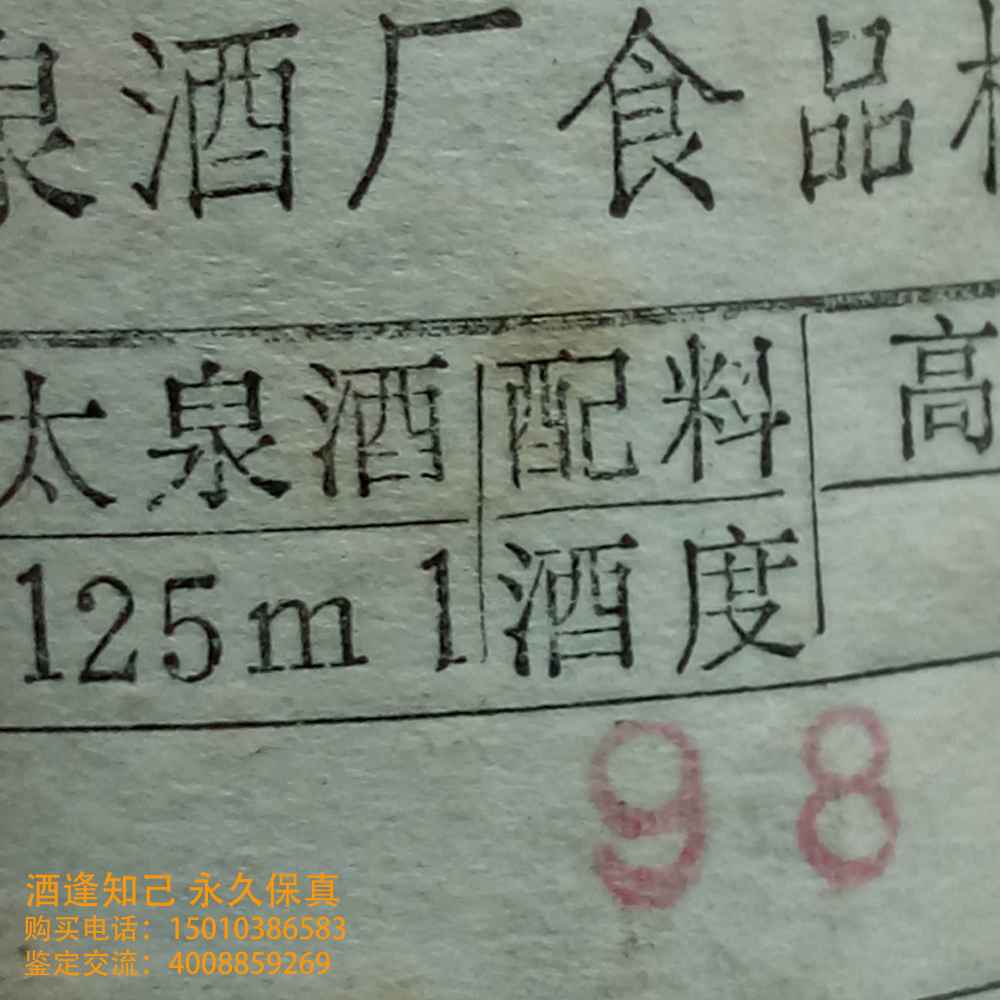 泉酒厂食品标
太泉酒 配料 高
125ml 酒度
98
酒逢知己 永久保真
购买电话：15010386583
鉴定交流：4008859269